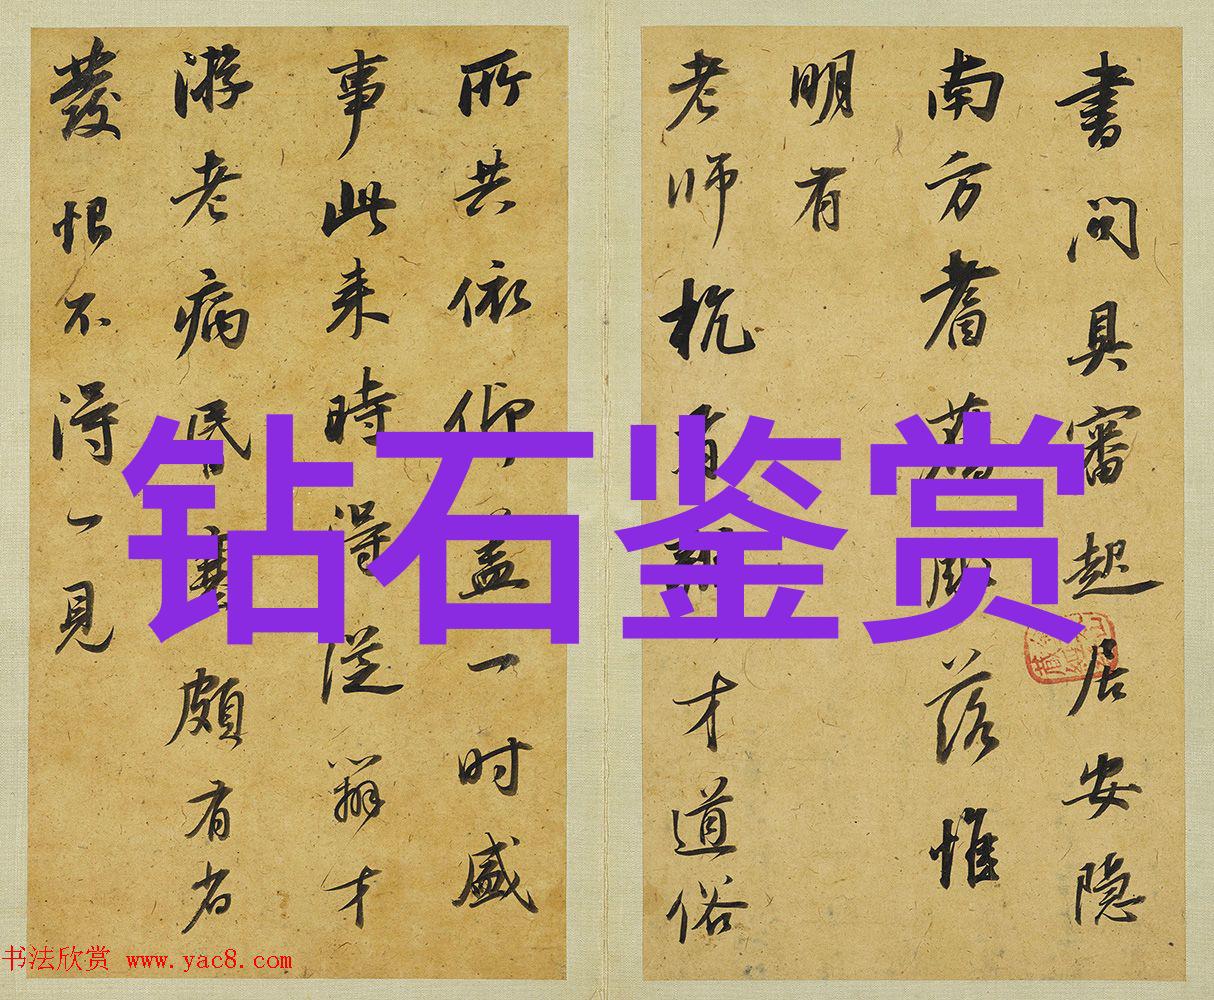 書問具審起居安隱
南方耆舊凋落惟
明有
老師杭有辯才道俗
所共依仰蓋一时盛
事此来時得從辯才
游老病昏塞頗有省
發恨不得一見
钻石鉴赏
书法欣赏 www.yac8.com